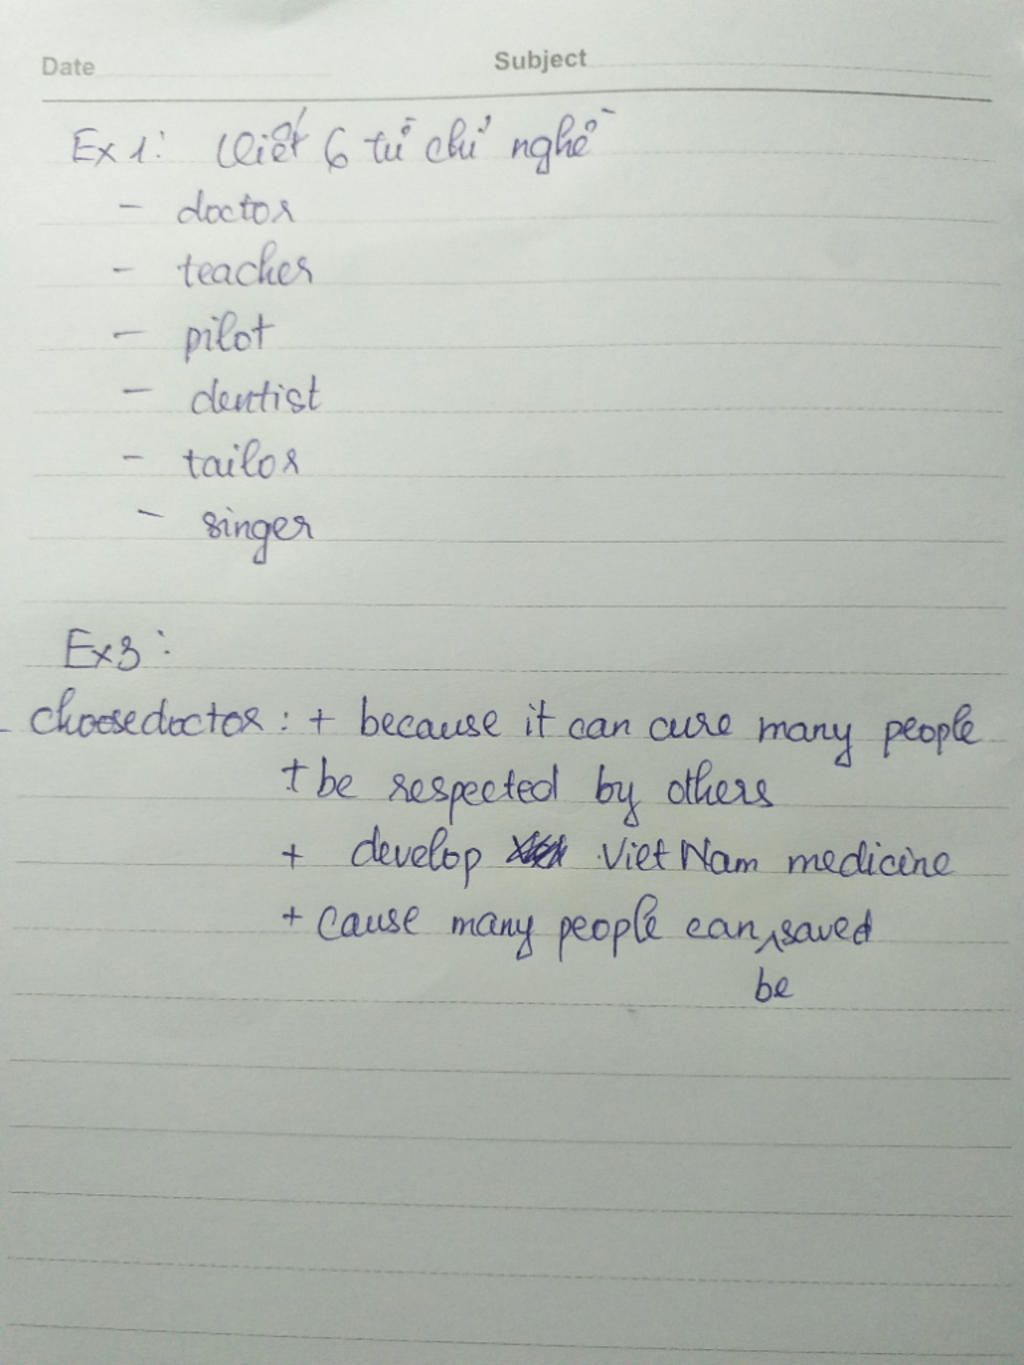 Date Subject
Ex 1: Viết 6 từ chỉ nghề
- doctor
- teacher
- pilot
- dentist
- tailor
- singer
Ex3:
- choosedoctor: + because it can cure many people
+ be respected by others
+ develop Viet Nam medicine
+ cause many people can be saved